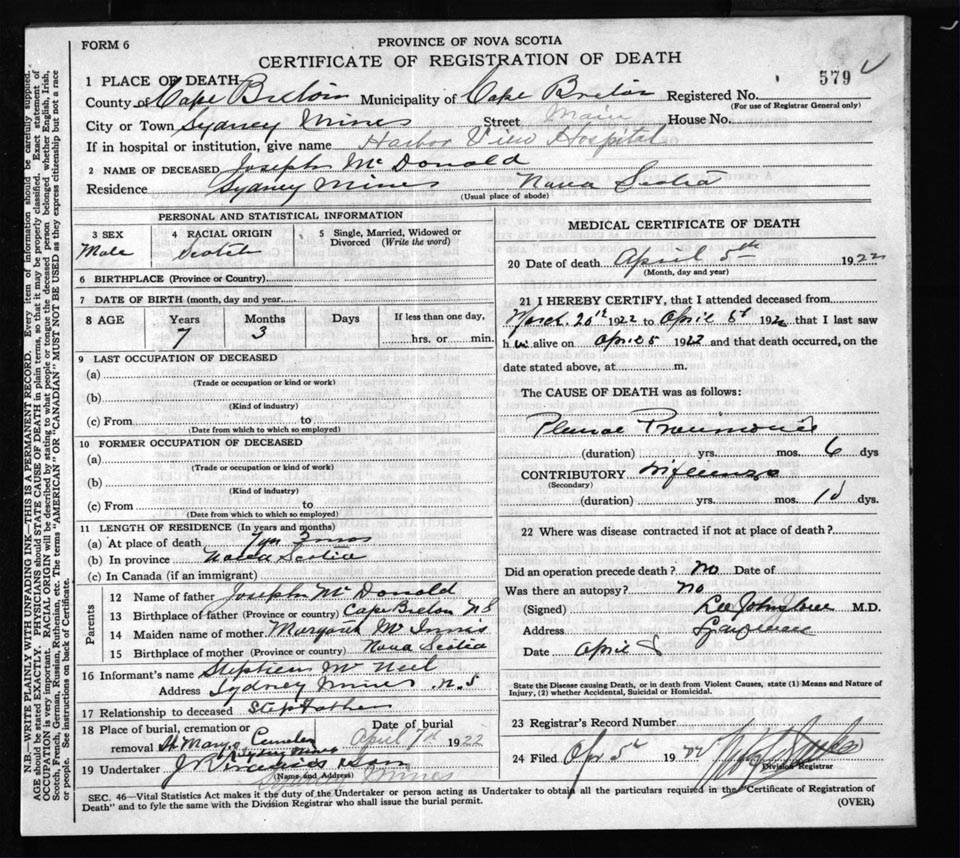 FORM 6
PROVINCE OF NOVA SCOTIA
CERTIFICATE OF REGISTRATION OF DEATH
579
1 PLACE OF DEATH
County of Cape Breton Municipality of Cape Breton Registered No.
(For use of Registrar General only)
City or Town Sydney Mines Street Main House No.
If in hospital or institution, give name Harbor View Hospital
2 NAME OF DECEASED Joseph Mc Donald
Residence Sydney Mines Nova Scotia
(Usual place of abode)
PERSONAL AND STATISTICAL INFORMATION
3 SEX 4 RACIAL ORIGIN 5 Single, Married, Widowed or Divorced (Write the word)
Male Scotch
6 BIRTHPLACE (Province or Country)
7 DATE OF BIRTH (month, day and year
8 AGE Years Months Days If less than one day,
7 3 hrs. or min.
9 LAST OCCUPATION OF DECEASED
(a)
(Trade or occupation or kind or work)
(b)
(Kind of industry)
(c) From to
(Date from which to which so employed)
10 FORMER OCCUPATION OF DECEASED
(a)
(Trade or occupation or kind or work)
(b)
(Kind of industry)
(c) From to
(Date from which to which so employed)
11 LENGTH OF RESIDENCE (In years and months)
(a) At place of death 7 yrs 3 mos
(b) In province Nova Scotia
(c) In Canada (if an immigrant)
Parents
12 Name of father Joseph Mc Donald
13 Birthplace of father (Province or country) Cape Breton N S
14 Maiden name of mother Margaret Mc Innis
15 Birthplace of mother (Province or country) Nova Scotia
16 Informant's name Stephen Mc Neil
Address Sydney Mines N.S
17 Relationship to deceased Step Father
18 Place of burial, cremation or removal St Marys Cemetery Sydney Mines
Date of burial April 7th 1922
19 Undertaker & Son
(Name and Address)
Sydney Mines
MEDICAL CERTIFICATE OF DEATH
20 Date of death April 5th 1922
(Month, day and year)
21 I HEREBY CERTIFY, that I attended deceased from
March 20th 1922 to April 5th 1922 that I last saw
h im alive on April 5 1922 and that death occurred, on the
date stated above, at m.
The CAUSE OF DEATH was as follows:
Pneumonia
(duration) yrs. mos. 6 dys
CONTRIBUTORY Influenza
(Secondary)
(duration) yrs. mos. 10 dys.
22 Where was disease contracted if not at place of death?
Did an operation precede death? No Date of
Was there an autopsy? No
(Signed) M.D.
Address
Date April 8
State the Disease causing Death, or in death from Violent Causes, state (1) Means and Nature of Injury, (2) whether Accidental, Suicidal or Homicidal.
23 Registrar's Record Number
24 Filed Apr 5th 1922
Division Registrar
SEC. 46—Vital Statistics Act makes it the duty of the Undertaker or person acting as Undertaker to obtain all the particulars required in the "Certificate of Registration of
Death" and to fyle the same with the Division Registrar who shall issue the burial permit.
(OVER)
N.B.—WRITE PLAINLY WITH UNFADING INK—THIS IS A PERMANENT RECORD. Every item of information should be carefully supplied.
AGE should be stated EXACTLY. PHYSICIANS should STATE CAUSE OF DEATH in plain terms, so that it may be properly classified. Exact statement of
OCCUPATION is very important. RACIAL ORIGIN will be described by stating to what people or tongue the deceased person belonged whether English, Irish,
Scotch, French, German, Russian, Ruthenian, etc. The terms "AMERICAN" OR "CANADIAN" MUST NOT BE USED as they express citizenship but not a race
or people. See instructions on back of Certificate.